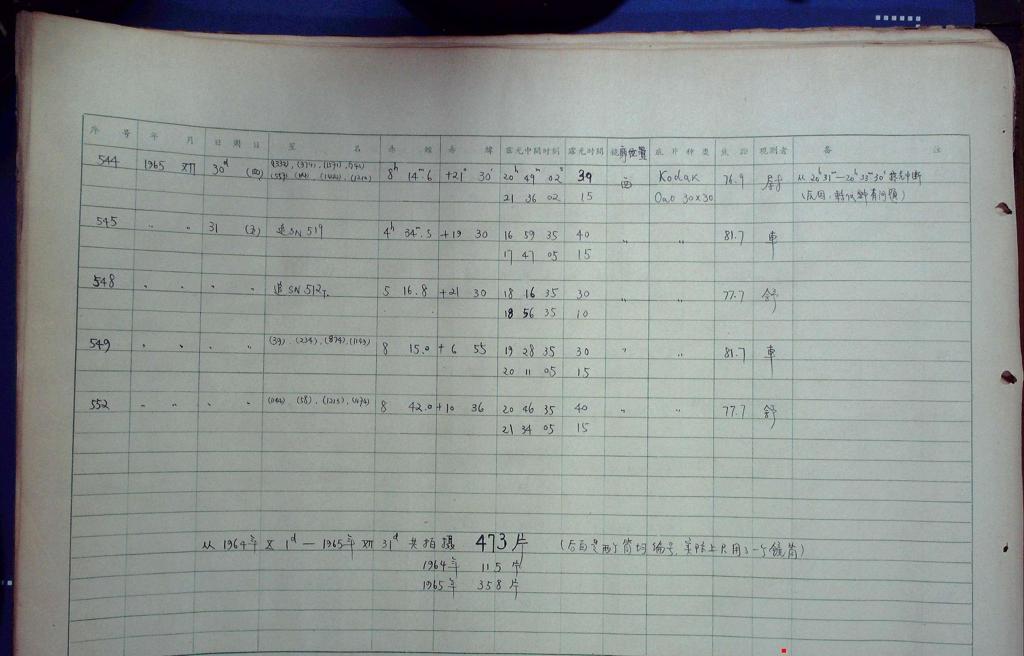 序 号 年 月 日 周日 星 名 赤 经 赤 纬 露光中间时刻 露光时间 镜筒位置 底片种类 焦距 观测者 备 注
544 1965 XII 30d (四) 8h 14m.6 +21° 30′ 20h 49m 02s 39 西 Kodak 76.9 从 20h 31m—20h 33m 30s 露光中断
21 36 02 15 OaO 30×30
545 〃 〃 31 (五) 追SN 517 4h 34m.5 +19 30 16 59 35 40 〃 〃 81.7 車
17 47 05 15
548 〃 〃 〃 〃 追SN 512 5 16.8 +21 30 18 16 35 30 〃 〃 77.7 舒
18 56 35 10
549 〃 〃 〃 〃 (39), (234), (874), 8 15.0 +6 55 19 28 35 30 〃 〃 81.7 車
20 11 05 15
552 〃 〃 〃 〃 (58), (1213), 8 42.0 +10 36 20 46 35 40 〃 〃 77.7 舒
21 34 05 15
从 1964年 X 1d — 1965年 XII 31d 共拍摄 473片 (后面是两个筒均编号,实际上只用了一个镜筒)
1964年 115片
1965年 358片